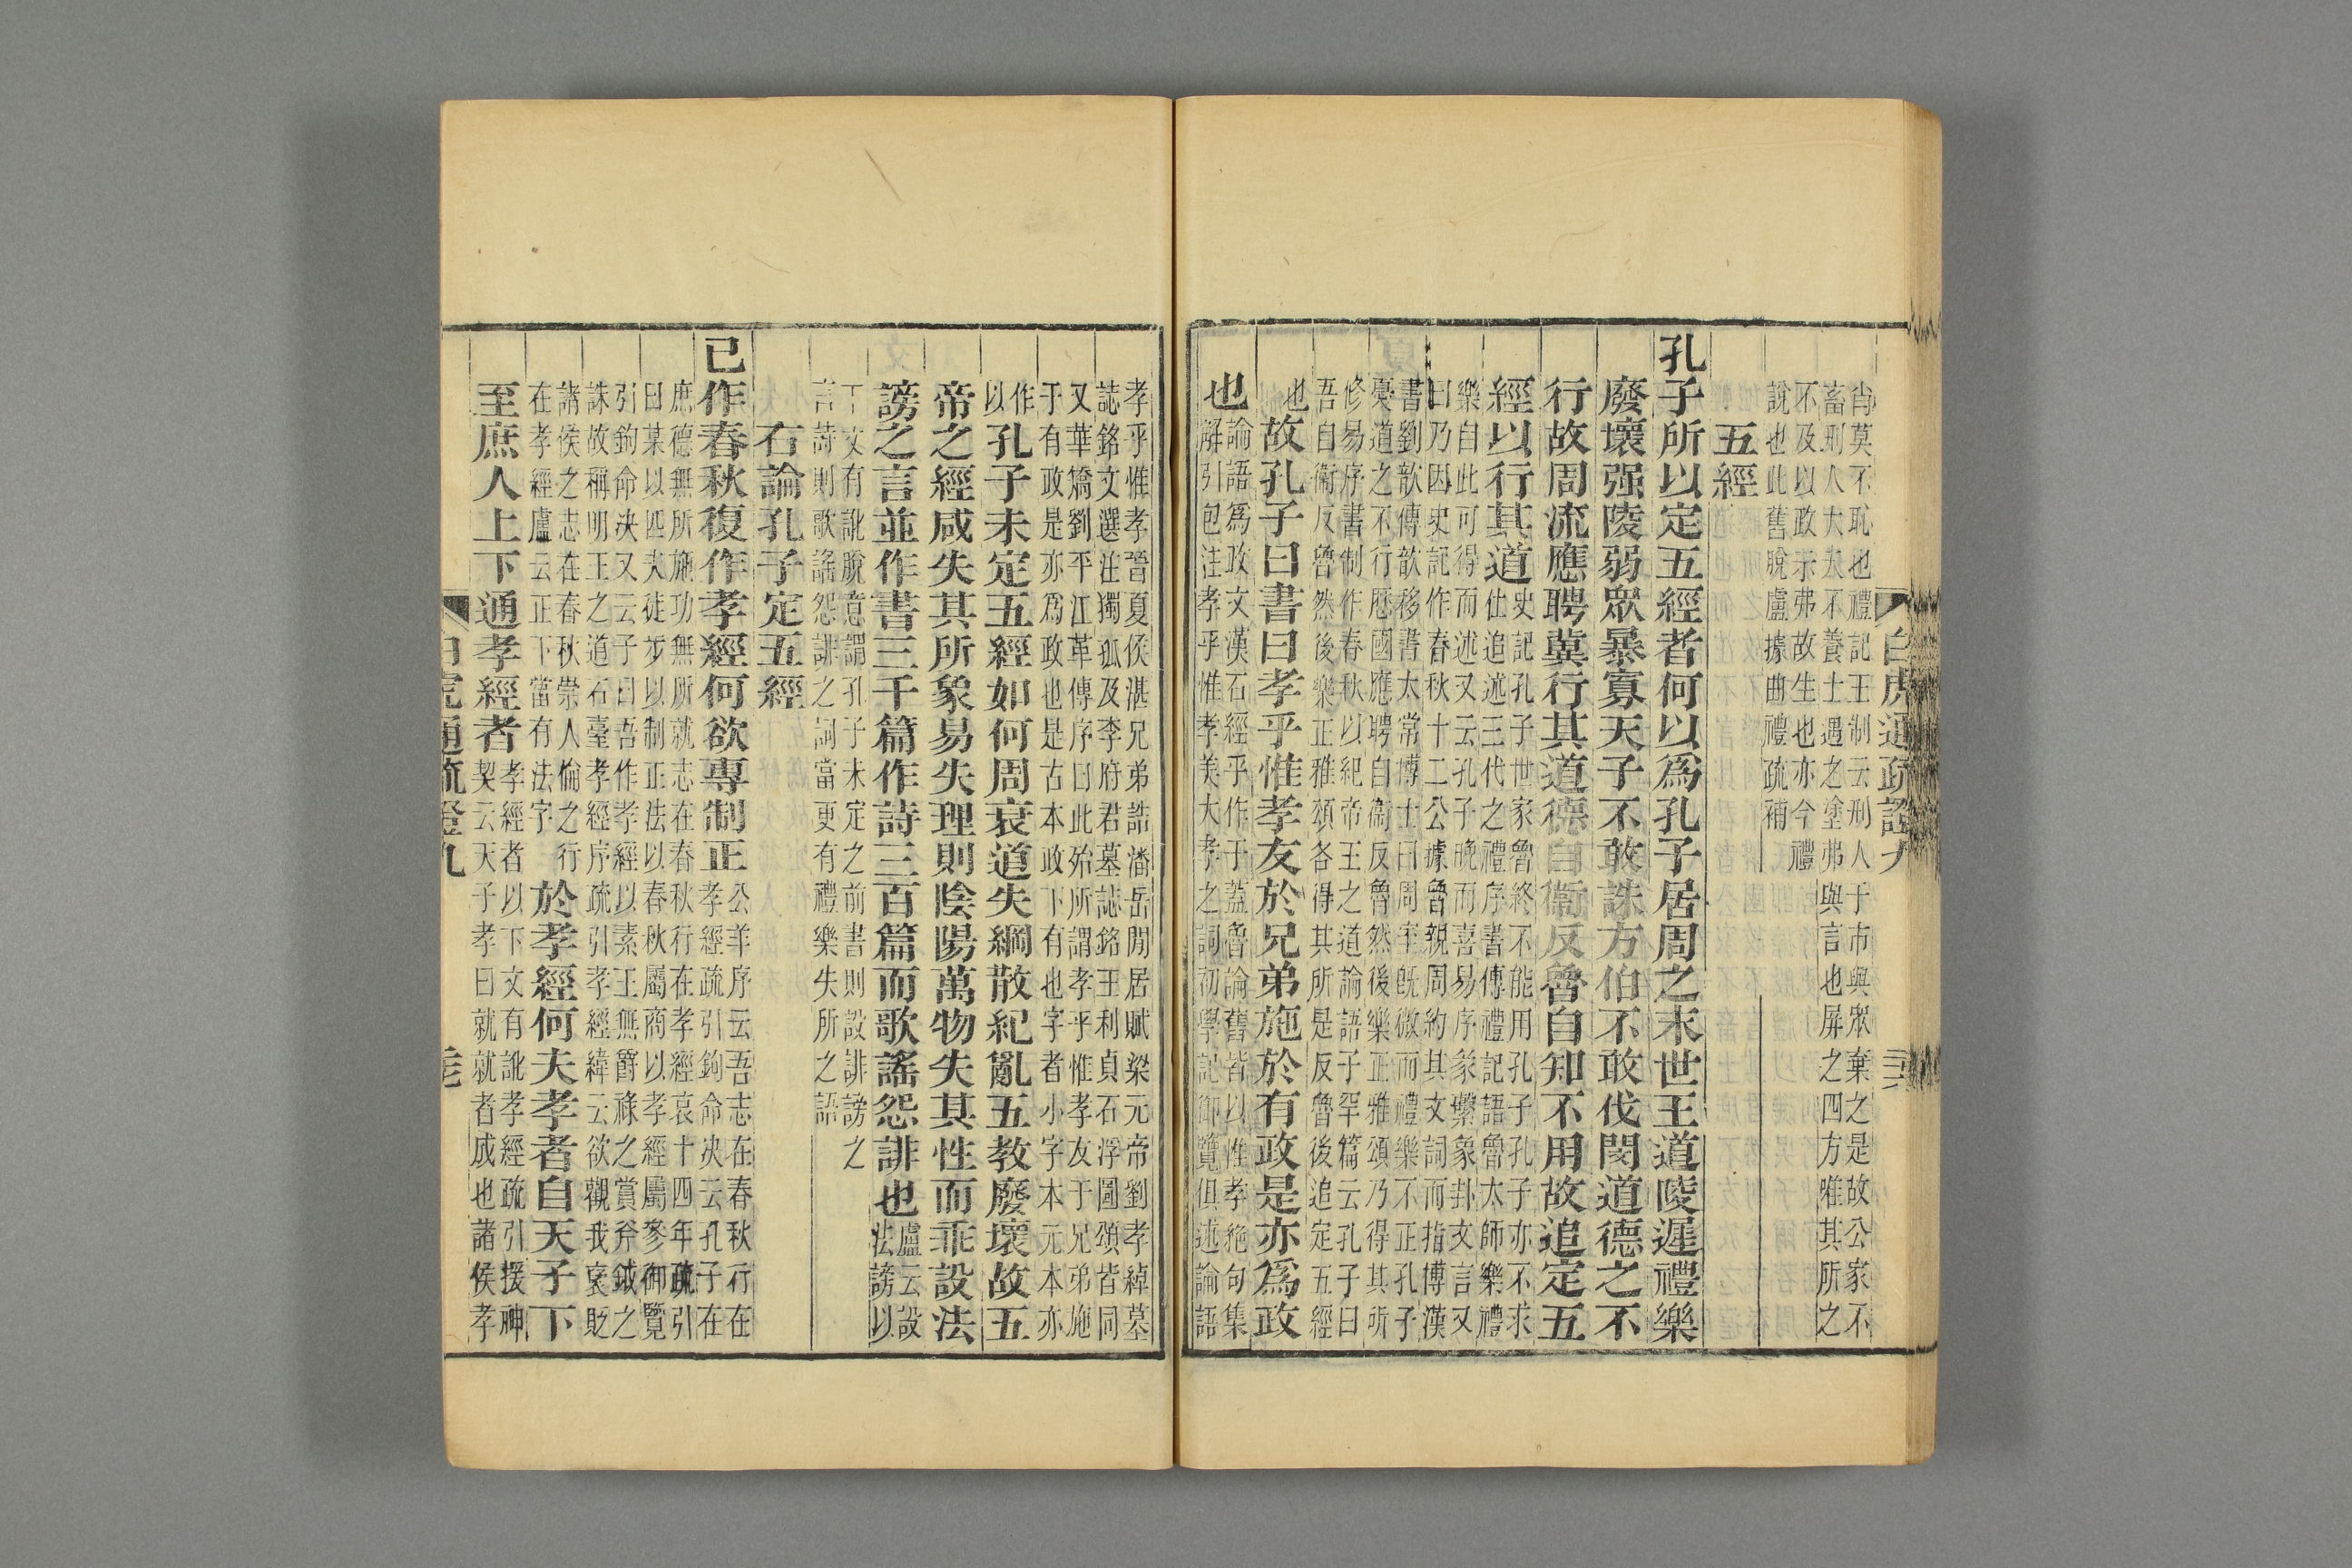 白虎通疏證九
尙莫不恥也禮記王制云刑人于市與眾棄之是故公家不
畜刑人大夫不養士遇之塗弗與言也屏之四方唯其所之
不及以政示弗故生也亦今禮
說也此舊脫盧據曲禮疏補
五經
孔子所以定五經者何以爲孔子居周之末世王道陵遲禮樂
廢壞强陵弱眾暴寡天子不敢誅方伯不敢伐閔道德之不
行故周流應聘冀行其道德自衞反魯自知不用故追定五
經以行其道
史記孔子世家魯終不能用孔子孔子亦不求
仕追述三代之禮序書傳禮記語魯太師樂禮
樂自此可得而述又云孔子晚而喜易序彖繫象卦文言又
曰乃因史記作春秋十二公據魯親周約其文詞而指博漢
書劉歆傳歆移書太常博士曰周室旣微而禮樂不正孔子
憂道之不行歷國應聘自衞反魯然後樂正雅頌乃得其所
修易序書制作春秋以紀帝王之道論語子罕篇云孔子曰
吾自衞反魯然後樂正雅頌各得其所是反魯後追定五經
也
故孔子曰書曰孝乎惟孝友於兄弟施於有政是亦爲政
也
論語爲政文漢石經乎作于蓋魯論舊皆以惟孝絶句集
解引包注孝乎惟孝美大孝之詞初學記御覽俱述論語
孝乎惟孝晉夏侯湛兄弟誥潘岳閒居賦梁元帝劉孝綽墓
誌銘文選注獨孤及李府君墓誌銘王利貞石浮圖頌皆同
又華嶠劉平江革傳序曰此殆所謂孝乎惟孝友于兄弟施
于有政是亦爲政也是古本政下有也字者小字本元本亦
作
以
孔子未定五經如何周衰道失綱散紀亂五教廢壞故五
帝之經咸失其所象易失理則陰陽萬物失其性而乖設法
謗之言並作書三千篇作詩三百篇而歌謠怨誹也
盧云設
法謗以
下文有訛脫意謂孔子未定之前書則設誹謗之
言詩則歌謠怨誹之詞當更有禮樂失所之語
右論孔子定五經
已作春秋復作孝經何欲專制正
公羊序云吾志在春秋行在
孝經疏引鉤命決云孔子在
庶德無所施功無所就志在春秋行在孝經哀十四年疏引
曰某以匹夫徒步以制正法以春秋屬商以孝經屬參御覽
引鉤命決又云子曰吾作孝經以素王無爵祿之賞斧鉞之
誅故稱明王之道石臺孝經序疏引孝經緯云欲觀我襃貶
諸侯之志在春秋崇人倫之行
在孝經盧云正下當有法字
於孝經何夫孝者自天子下
至庶人上下通孝經者
孝經者以下文有訛孝經疏引援神
契云天子孝曰就就者成也諸侯孝
白虎通疏證九